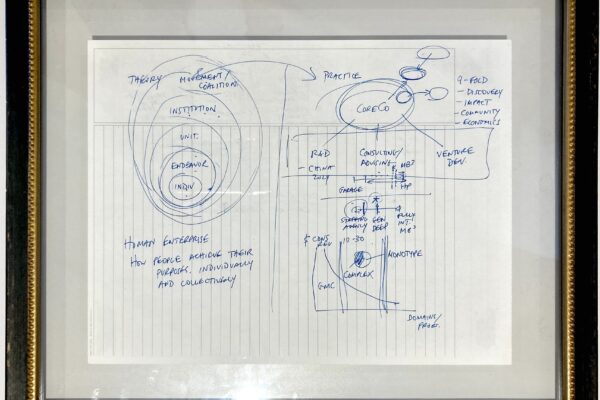 THEORY MOVEMENT/
COALITION
INSTITUTION
UNIT.
ENDEAVOR
INDIV
HUMAN ENTERPRISE
HOW PEOPLE ACHIEVE THEIR
PURPOSES. INDIVIDUALLY
AND COLLECTIVELY
PRACTICE
CORECO
4-FOLD
- DISCOVERY
- IMPACT
- COMMUNITY
- ECONOMICS
R&D
- CHINA
CONSULTING/
ADVISING
VENTURE
DEV.
GARAGE
HP
GEN
DEEP
FULLY
INT.
$ CONS
10-30
MONOTYPE
COMPLEX
GMC
DOMAINS/